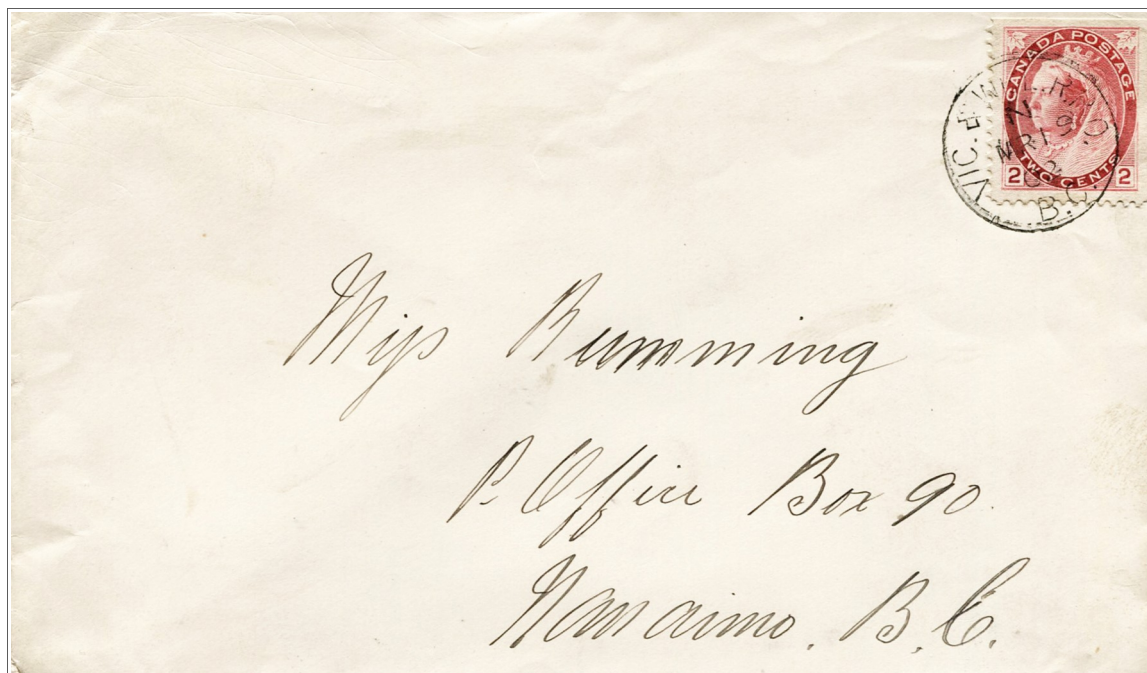 CANADA POSTAGE
2 TWO CENTS 2
VIC. & WEL. R.P.O.
N
MR 19
02
B.C.
Miss Rumming
P. Office Box 90
Nanaimo. B.C.